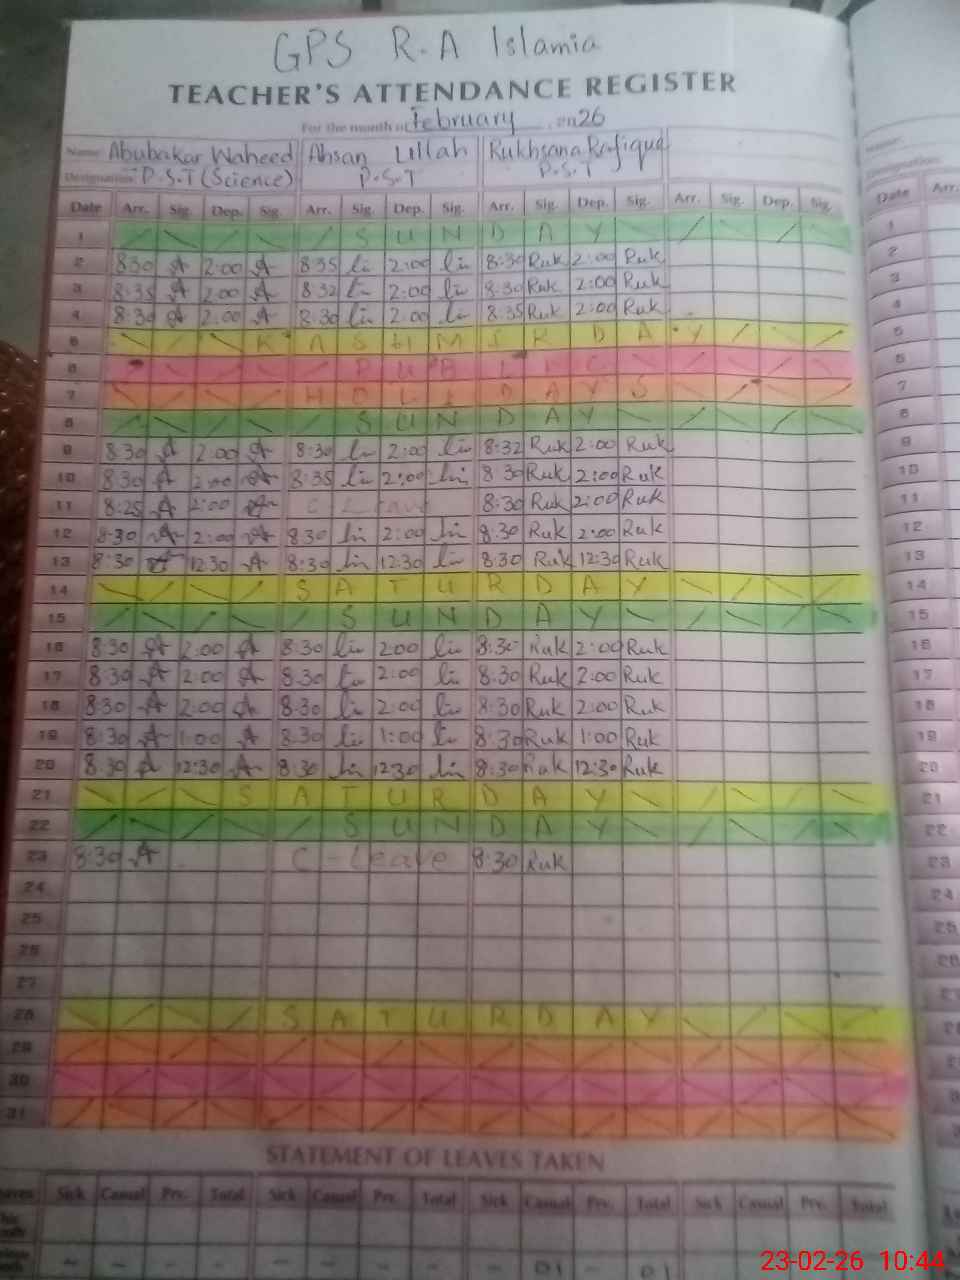 GPS R.A Islamia
TEACHER'S ATTENDANCE REGISTER
For the month of February 2026
Name: Abubakar Waheed Ahsan Ullah Rukhsana Rafique
Designation: P.S.T (Science) P.S.T P.S.T
Date Arr. Sig. Dep. Sig. Arr. Sig. Dep. Sig. Arr. Sig. Dep. Sig. Arr. Sig. Dep. Sig.
1 SUNDAY
2 8:30 A 2:00 A 8:35 2:00 8:30 Ruk 2:00 Ruk
3 8:35 A 2:00 A 8:32 2:00 8:30 Ruk 2:00 Ruk
4 8:30 A 2:00 A 8:30 2:00 8:35 Ruk 2:00 Ruk
5 DAY
6 PUBLIC
7 HOLIDAYS
8 SUNDAY
9 8:30 A 2:00 A 8:30 2:00 8:32 Ruk 2:00 Ruk
10 8:30 A 2:00 A 8:35 2:00 8:30 Ruk 2:00 Ruk
11 8:25 A 2:00 A C Leave 8:30 Ruk 2:00 Ruk
12 8:30 A 2:00 A 8:30 2:00 8:30 Ruk 2:00 Ruk
13 8:30 A 12:30 A 8:30 12:30 8:30 Ruk 12:30 Ruk
14 SATURDAY
15 SUNDAY
16 8:30 A 2:00 A 8:30 2:00 8:30 Ruk 2:00 Ruk
17 8:30 A 2:00 A 8:30 2:00 8:30 Ruk 2:00 Ruk
18 8:30 A 2:00 A 8:30 2:00 8:30 Ruk 2:00 Ruk
19 8:30 A 1:00 A 8:30 1:00 8:30 Ruk 1:00 Ruk
20 8:30 A 12:30 A 8:30 12:30 8:30 Ruk 12:30 Ruk
21 SATURDAY
22 SUNDAY
23 8:30 A C-Leave 8:30 Ruk
24
25
26
27
28 SATURDAY
29
30
31
STATEMENT OF LEAVES TAKEN
Sick Casual Prv. Total Sick Casual Prv. Total Sick Casual Prv. Total Sick Casual Prv. Total
01 01
23-02-26 10:44